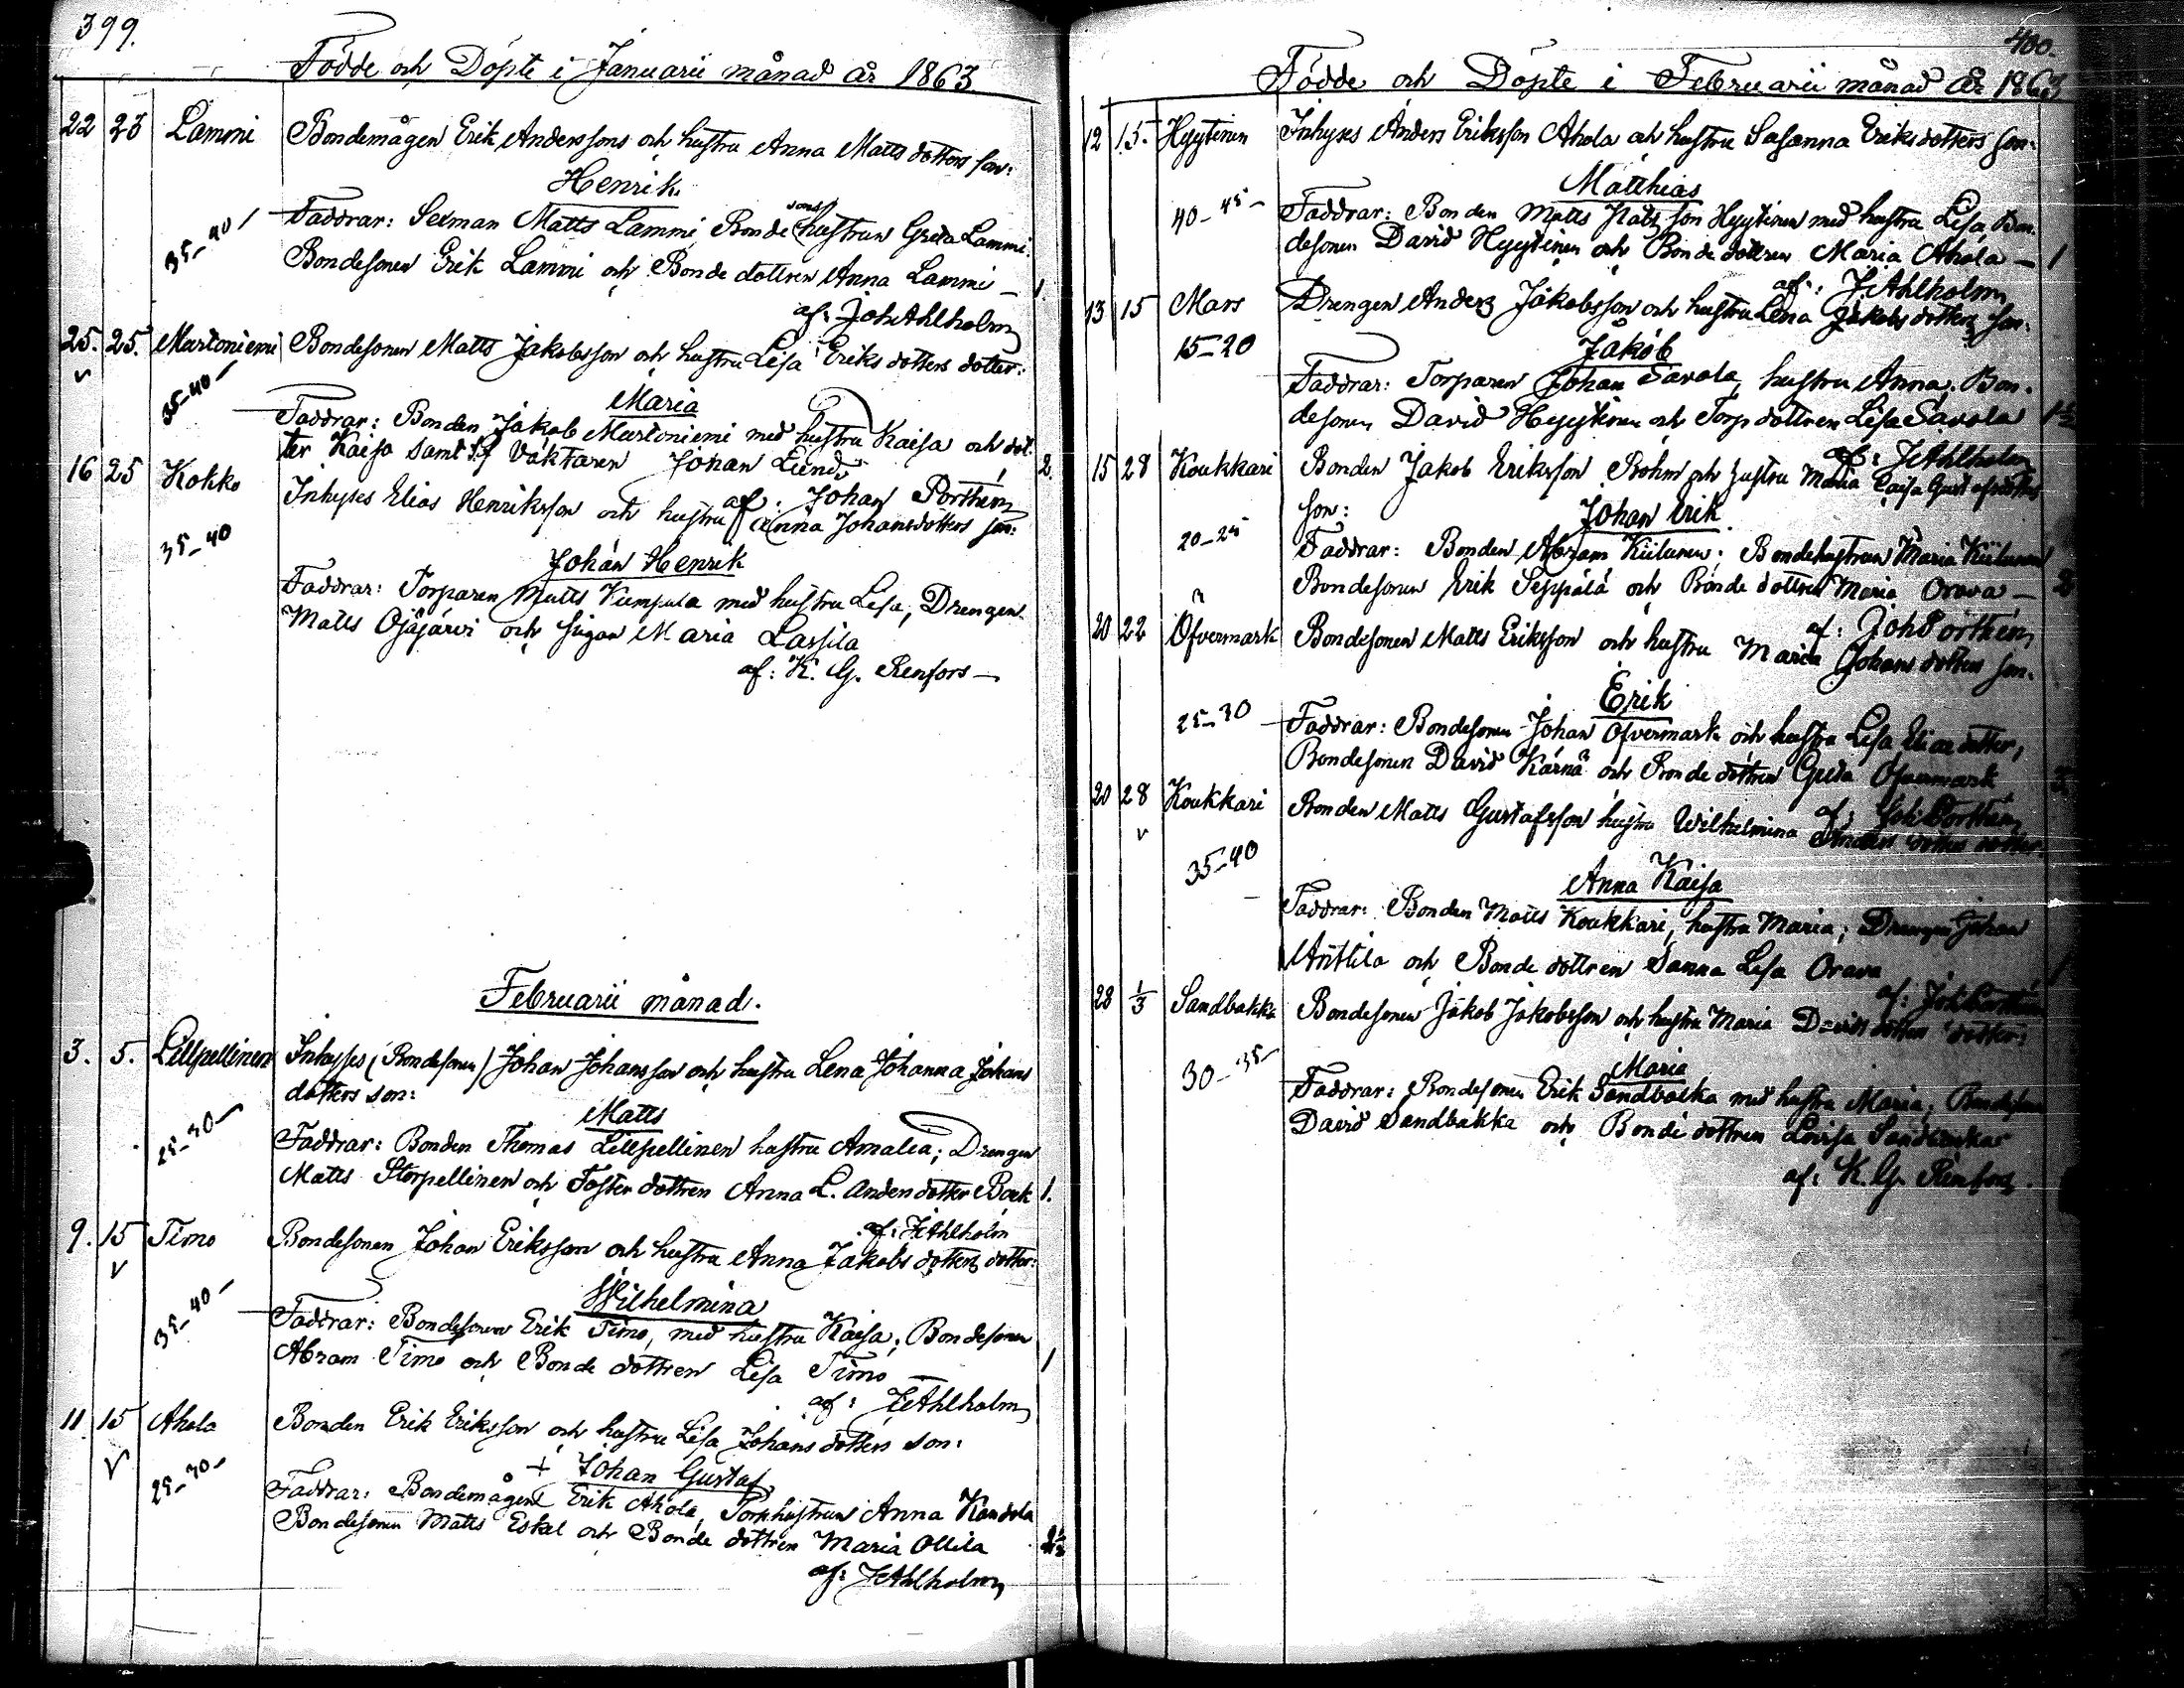 399.
Födde och Döpte i Januarii månad år 1863
22 23 Lammi Bondemågen Erik Anderssons och hustru Anna Matts dotters son:
Henrik
35-40 Faddrar: Sexman Matts Lammi Bondesons hustrun Greta Lammi
Bondesonen Erik Lammi och Bonde dottren Anna Lammi — 1
af: Joh Ahlholm
25. 25. Murtoniemi Bondesonen Matts Jakobsson och hustru Lisa Eriks dotters dotter:
35-40 Maria
Faddrar: Bonden Jakob Murtoniemi med hustru Kaisa och dot
ter Kaisa samt Vaktaren Johan Lund 2
af: Johan Porthén
16 25 Kokko Inhyses Elias Henriksson och hustru Anna Johansdotters son:
35-40 Johan Henrik
Faddrar: Torparen Matts Kumpula med hustru Lisa, Drengen
Matts Ojajärvi och Pigan Maria Lassila
af: K. G. Renfors —
Februarii månad.
3. 5. Lillpellinen Inhyses (Bondesonen) Johan Johansson och hustru Lena Johanna Johans
dotters son:
Matts
25-30 Faddrar: Bonden Thomas Lillpellinen hustru Amalia; Drengen
Matts Storpellinen och Foster dottren Anna L. Anders dotter Bäck 1.
af: J Ahlholm
9. 15 Timo Bondesonen Johan Eriksson och hustru Anna Jakobs dotters dotter:
Wilhelmina
35-40 Faddrar: Bondesonen Erik Timo, med hustru Kaisa; Bondesonen
Abram Timo och Bonde dottren Lisa Timo 1
af: J Ahlholm
11 15 Ahola Bonden Erik Eriksson och hustru Lisa Johans dotters son:
+ Johan Gustaf
25-30 Faddrar: Bondemågen Erik Ahola, Torphustrun Anna Kandola
Bondesonen Matts Eskel och Bonde dottren Maria Ollila
af: J Ahlholm
400.
Födde och Döpte i Februarii månad år 1863
12 15 Hyytinen Inhyses Anders Eriksson Ahola och hustru Susanna Eriksdotters son:
Matthias
40-45 Faddrar: Bonden Matts Matsson Hyytinen med hustru Lisa, Bon
desonen David Hyytinen och Bonde dottren Maria Ahola — 1
af: J Ahlholm
13 15 Mars Drengen Anders Jakobsson och hustru Lena Jakobs dotters son.
15-20 Jakob
Faddrar: Torparen Johan Savola, hustru Anna; Bon
desonen David Hyytinen och Torp dottren Lisa Savola 1½
af: J Ahlholm
15 28 Koukkari Bonden Jakob Eriksson Bohm och hustru Maria Caisa Gustafsdotters
son:
Johan Erik
20-25 Faddrar: Bonden Abram Kiilunen; Bondehustrun Maria Kiilunen
Bondesonen Erik Seppälä och Bonde dottren Maria Orava — 2
af: Joh Porthén
20 22 Öfvermark Bondesonen Matts Eriksson och hustru Maria Johans dotters son.
Erik
25-30 Faddrar: Bondesonen Johan Öfvermark och hustru Lisa Elias dotter,
Bondesonen David Kärnä och Bonde dottren Greta Öfvermark
af: Joh Porthén
20 28 Koukkari Bonden Matts Gustafsson hustru Wilhelmina Anders dotters dotter
35-40 Anna Kaisa
Faddrar: Bonden Matts Koukkari, hustru Maria; Drengen Johan
Anttila och Bonde dottren Sanna Lisa Orava 1
af: Joh Porthén
28 1/3 Sandbakka Bondesonen Jakob Jakobsson och hustru Maria Davids dotters dotter:
30-35 Maria
Faddrar: Bondesonen Erik Sandbakka med hustru Maria, Bondesonen
David Sandbakka och Bonde dottren Lovisa Sandbakka
af: K. G. Renfors